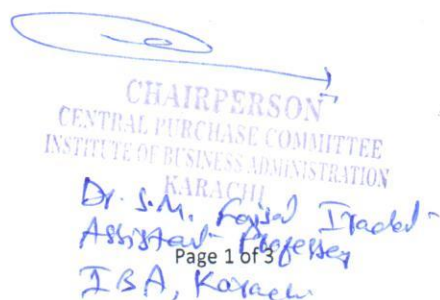 CHAIRPERSON
CENTRAL PURCHASE COMMITTEE
INSTITUTE OF BUSINESS ADMINISTRATION
KARACHI
Dr. S.M. Faisal Iradat
Assistant Professor
Page 1 of 3
IBA, Karachi